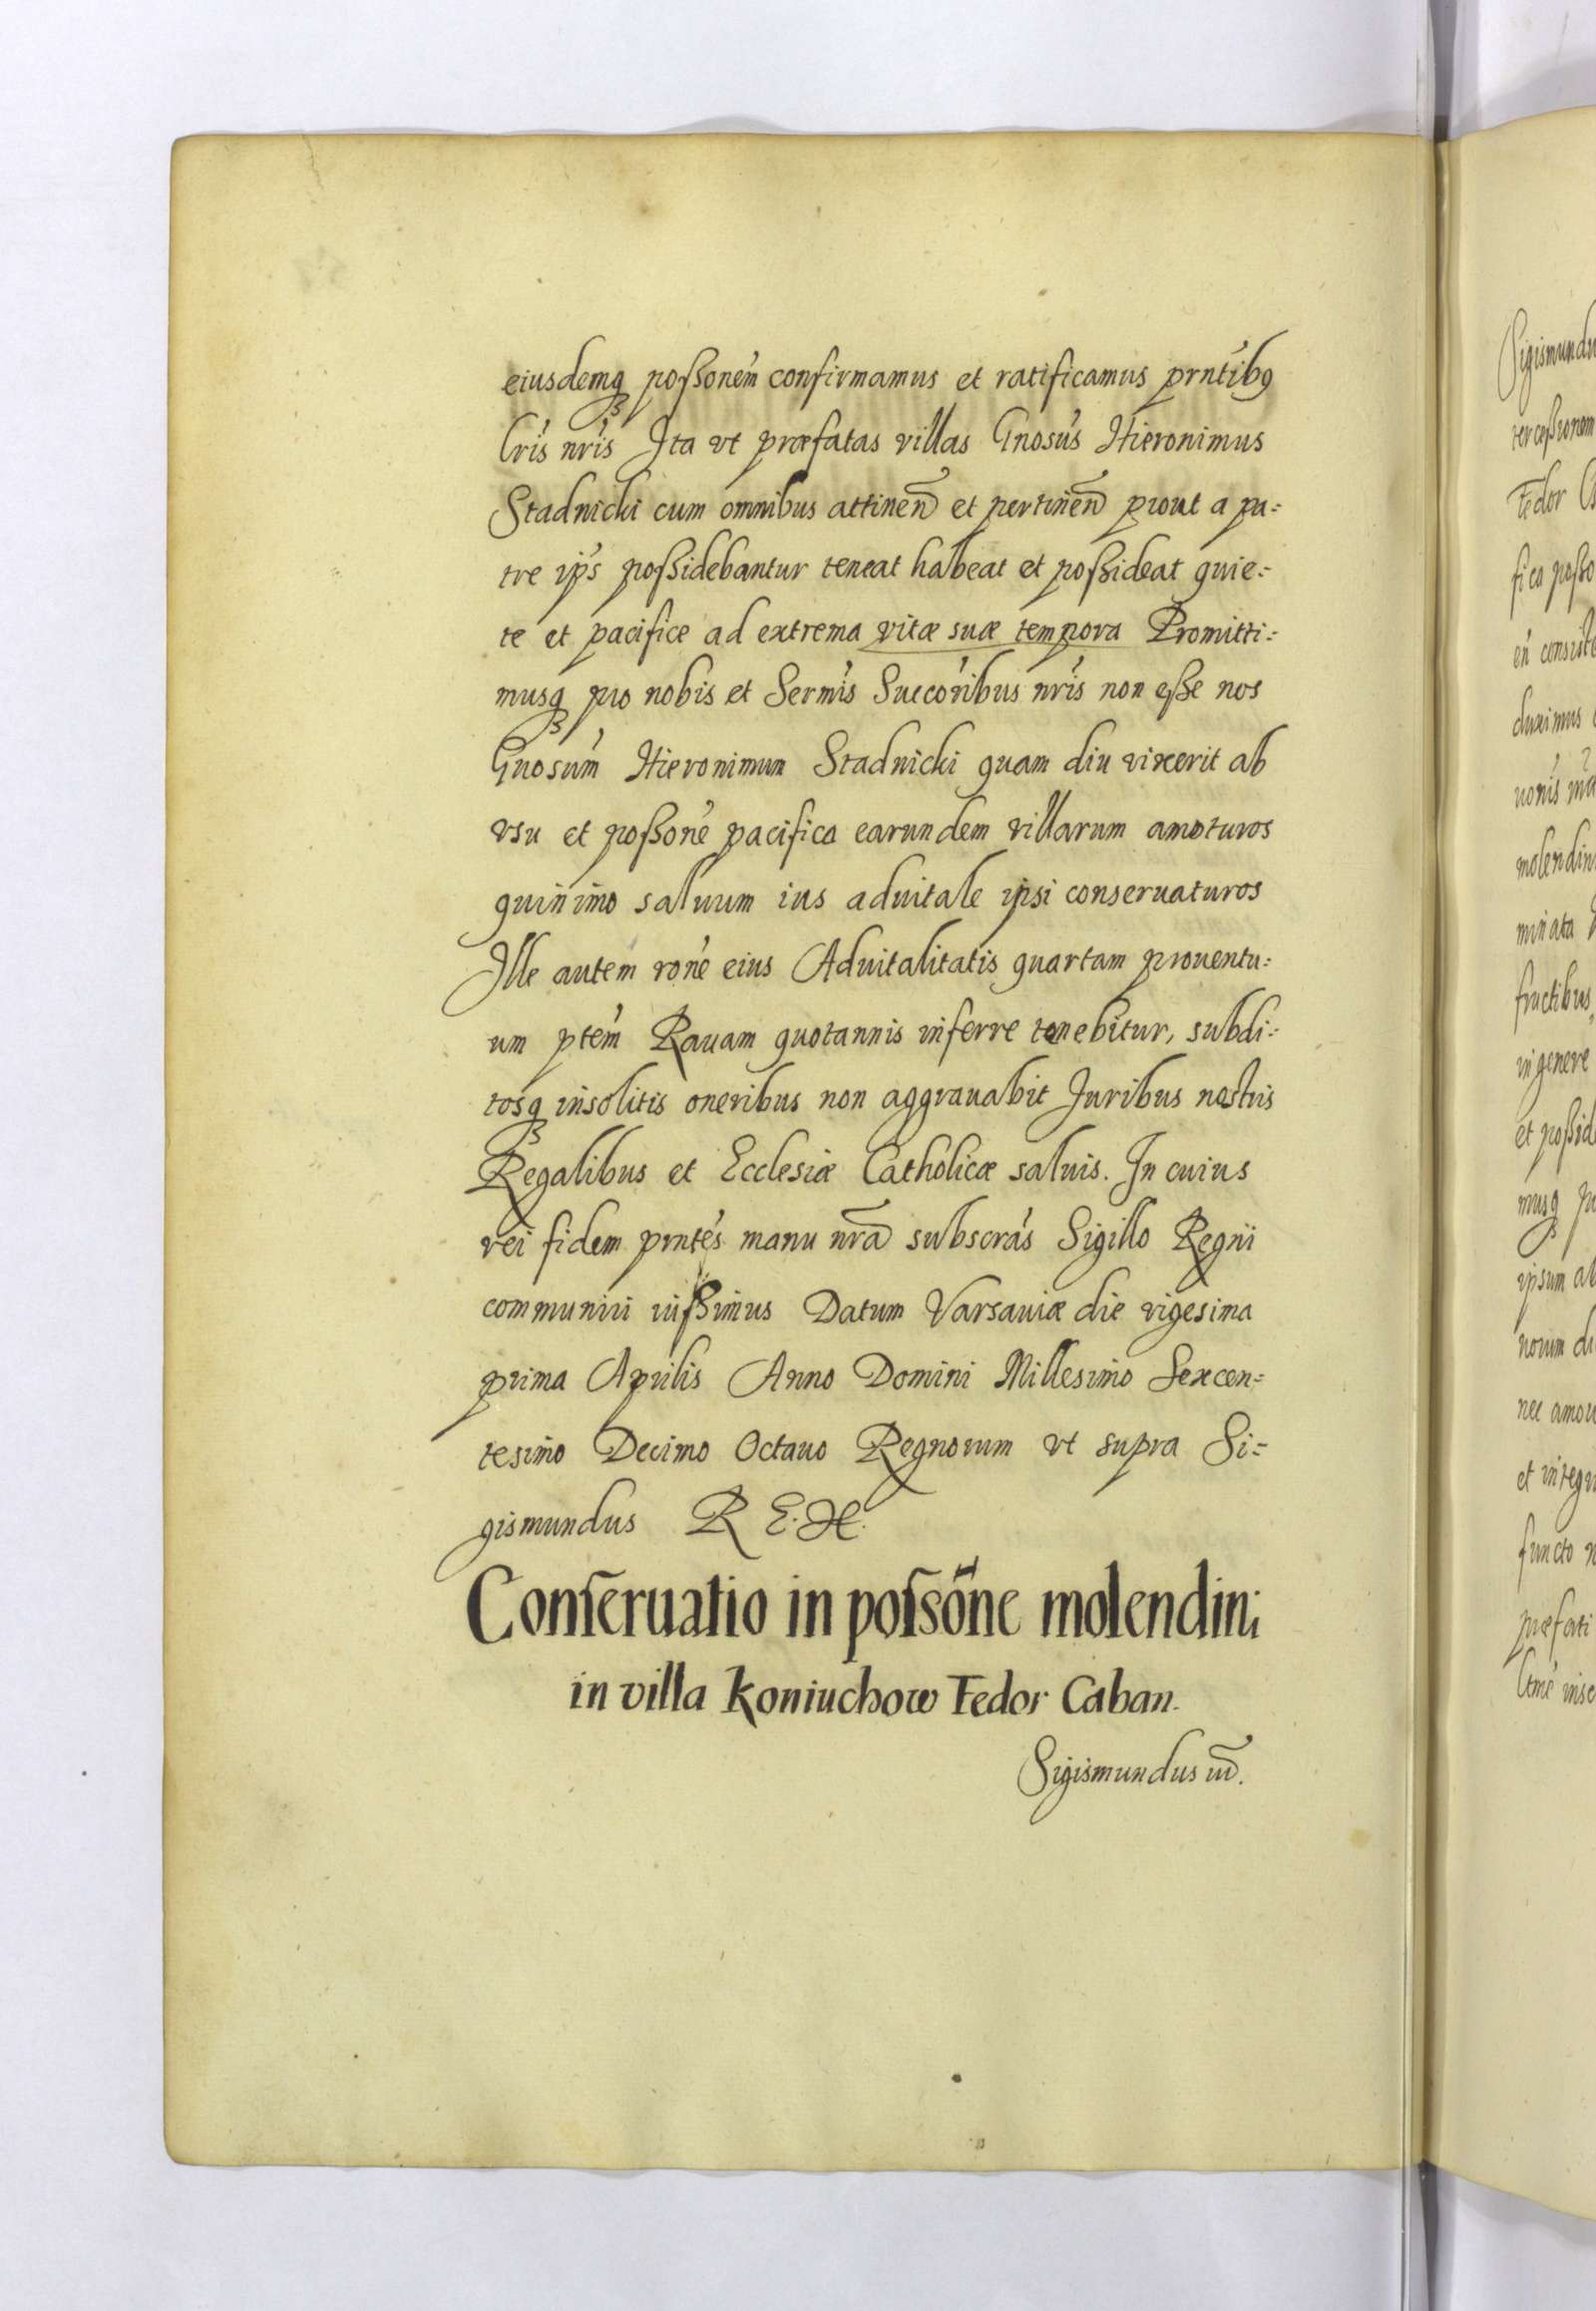 eiusdemq₃ poßonem̃ confirmamus et ratificamus prntibꝯ
Lris nris Ita vt præfatas villas Gnosus Hieronimus
Stadnicki cum omnibus attinen̄ et pertinen̄ prout a pa=
tre ips poßidebantur teneat habeat et poßideat quie=
te et pacifice ad extrema vitæ suæ tempora Promitti=
musq₃ pro nobis et Sermis Succoribus nris non eße nos
Gnosum Hieronimum Stadnicki quam diu vixerit ab
vsu et poßone pacifica earundem villarum amoturos
quinimo saluum ius aduitale ipsi conseruaturos
Ille autem rone eius Aduitalitatis quartam prouentu=
um ptem Rauam quotannis inferre tenebitur, subdi=
tosq₃ insolitis oneribus non aggrauabit Juribus nostris
Regalibus et Ecclesiæ Catholicæ saluis. In cuius
rei fidem prntes manu nra̅ subscras Sigillo Regni
communiri iußimus Datum Varsauiæ die vigesima
prima Aprilis Anno Domini Millesimo Sexcen=
tesimo Decimo Octauo Regnorum vt supra Si=
gismundus R E. H.
Conſeruatio in poſsone molendini
in villa Koniuchow Fedor Caban.
Sigismundus iii̅.
Sigismundu
terceßionem
Fedor
fica poßo
en consiste
duximus
uonis ma
molendin
minata
fructibus,
in genere
et poßid
musq₃ p
ipsum ab
norum di
nec amou
et integr
functo n
præfati
Ltme inse